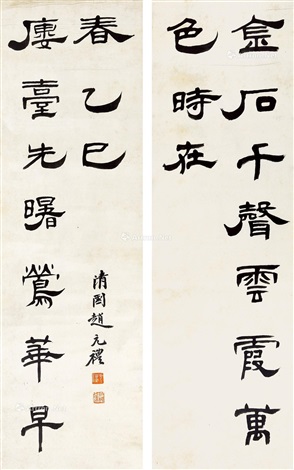 金石千聲雲霞萬
色時在
廔臺先曙鶯華早
春乙巳
清閣趙元禮